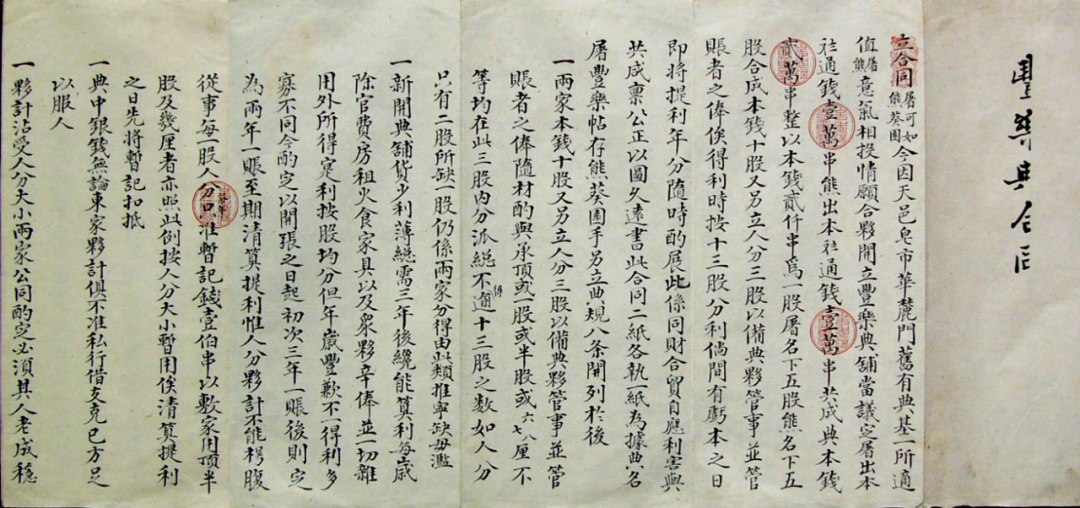 豐樂典合同
立合同屠可如熊葵園今因天邑皂市華麓門舊有典基一所適
值屠熊意氣相投情願合夥開立豐樂典舖當議定屠出本
社通錢壹萬串熊出本社通錢壹萬串共成典本錢
貳萬串整以本錢貳仟串爲一股屠名下五股熊名下五
股合成本錢十股又另立人分三股以備典夥管事並管
賬者之俸俟得利時按十三股分利倘間有虧本之日
即將提利年分隨時酌展此係同財合貿自應利害與
共成稟公正以圖久遠書此合同二紙各執一紙為據典名
屠豐樂帖存熊葵園手另立典規八条開列於後
一兩家本錢十股又另立人分三股以備典夥管事並管
賬者之俸隨材酌與承頂或一股或半股或六七八厘不
等均在此三股內分派總不得逾十三股之數如人分
只有二股所缺一股仍係兩家分得由此類推寧缺毋濫
一新開典舖貨少利薄總需三年後纔能算利每歲
除官費房租火食家具以及衆夥辛俸並一切雜
用外所得寔利按股均分但年歲豐歉不一得利多
寡不同今酌定以開張之日起初次三年一賬後則定
為兩年一賬至期清算提利惟人分夥計不能枵腹
從事每一股人分只准暫記錢壹伯串以敷家用頂半
股及幾厘者亦照此例按人分大小暫用俟清算提利
之日先將暫記扣抵
一典中銀錢無論東家夥計俱不准私行借支克己方足
以服人
一夥計沾受人分大小兩家公同酌定必須其人老成穩